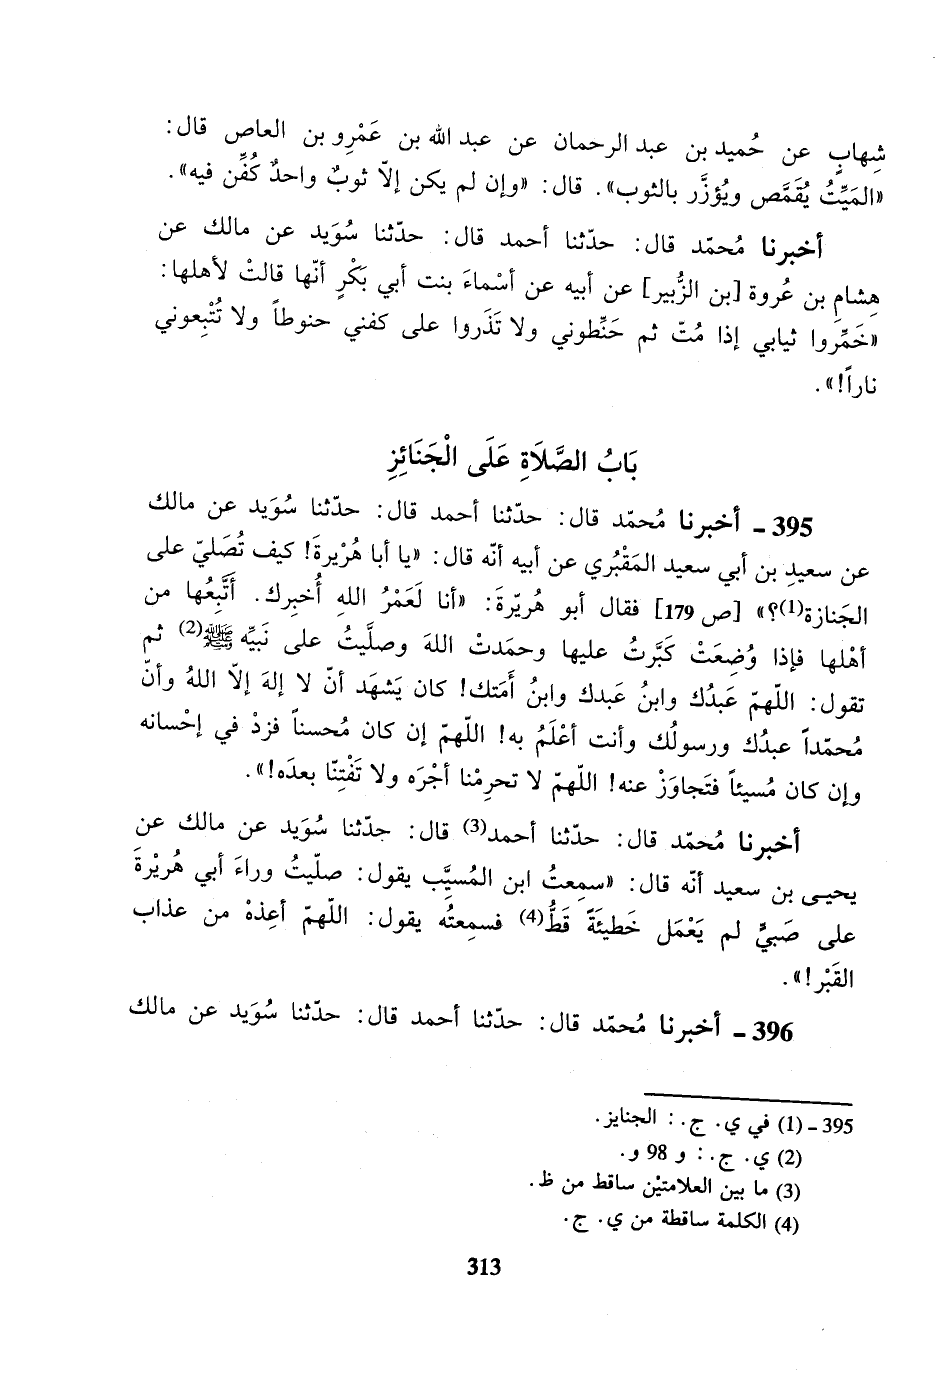 شِهابٍ عن حُميد بن عبد الرحمان عن عبد الله بن عَمْرِو بن العاص قال:
«المَيِّتُ يُقَمَّص ويُؤزَّر بالثوب». قال: «وإن لم يكن إلاّ ثوبٌ واحدٌ كُفِّن فيه».
أخبرنا مُحمّد قال: حدّثنا أحمد قال: حدّثنا سُوَيد عن مالك عن
هِشامِ بن عُروة [بن الزُّبير] عن أبيه عن أسْماءَ بنت أبي بَكْرٍ أنّها قالتْ لأهلها:
«خَمِّروا ثيابي إذا مُتّ ثم حَنِّطوني ولا تَذَروا على كفني حنوطاً ولا تُتْبِعوني
ناراً!».
بَابُ الصَّلَاةِ عَلَى الْجَنَائِزِ
395 - أخبرنا مُحمّد قال: حدّثنا أحمد قال: حدّثنا سُوَيد عن مالك
عن سعيدِ بن أبي سعيد المَقْبُري عن أبيه أنّه قال: «يا أبا هُرْيرةَ! كيف تُصَليّ على
الجَنازة(1)؟» [ص 179] فقال أبو هُريّرةَ: «أنا لَعَمْرُ اللهِ أُخبِرك. أتَّبِعُها من
أهْلها فإذا وُضِعَتْ كَبَّرتُ عليها وحمَدتْ اللهَ وصلَّيتُ على نَبيِّه ﷺ(2) ثم
تقول: اللّهمّ عَبدُك وابنُ عَبدك وابنُ أمَتك! كان يَشهَد أنّ لا إلهَ إلاّ اللهُ وأنّ
مُحمّداً عبدُك ورسولُك وأنت أعْلَمُ به! اللّهمّ إن كان مُحسناً فزدْ في إحْسانه
وإن كان مُسيئاً فتَجاوَزْ عنه! اللّهمّ لا تحرِمْنا أجْرَه ولا تَفْتِنّا بعدَه!».
أخبرنا مُحمّد قال: حدّثنا أحمد(3) قال: حدّثنا سُوَيد عن مالك عن
يحيى بن سعيد أنّه قال: «سمِعتُ ابن المُسيَّب يقول: صلّيتُ وراءَ أبي هُريْرةَ
على صَبيٍّ لم يَعْمَل خَطيئَةً قَطُّ(4) فسمِعتُه يقول: اللّهمّ أعِذهْ من عذاب
القَبْر!».
396 - أخبرنا مُحمّد قال: حدّثنا أحمد قال: حدّثنا سُوَيد عن مالك
395 - (1) في ي. ج. : الجنايز.
(2) ي. ج. : و 98 و.
(3) ما بين العلامتيْن ساقط من ظ.
(4) الكلمة ساقطة من ي. ج.
313